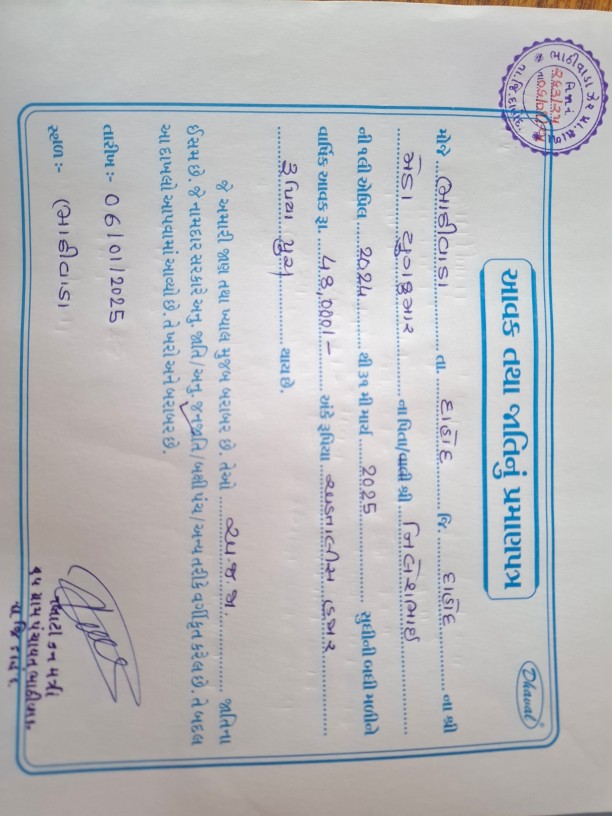 Dhaval®
આવક તથા જાતિનું પ્રમાણપત્ર
મોજે ભાઠીવાડા તા. દાહોદ જિ. દાહોદ ના શ્રી
મેડા યુવાકુમાર ના પિતા/વાલી શ્રી નિલેશભાઈ
ની ૧લી એપ્રિલ 2024 થી ૩૧ મી માર્ચ 2025 સુધીની બધી મળીને
વાર્ષિક આવક રૂા. 48,000/- અંકે રૂપિયા અડતાલીસ હજાર
રૂપિયા પુરા થાય છે.
જે અમારી જાણ તથા ખ્યાલ મુજબ બરાબર છે. તેઓ અ.જ.જા. જાતિના
ઈસમ છે. જે નામદાર સરકારે અનુ. જાતિ/અનુ. જનજાતિ/બક્ષી પંચ/અન્ય તરીકે વર્ગીકૃત કરેલ છે. તે બદલ
આ દાખલો આપવામાં આવ્યો છે. તે ખરો અને બરાબર છે.
તારીખ :- 06/01/2025
સ્થળ :- ભાઠીવાડા
તલાટી કમ મંત્રી
ગ્રામ પંચાયત ભાઠીવાડા